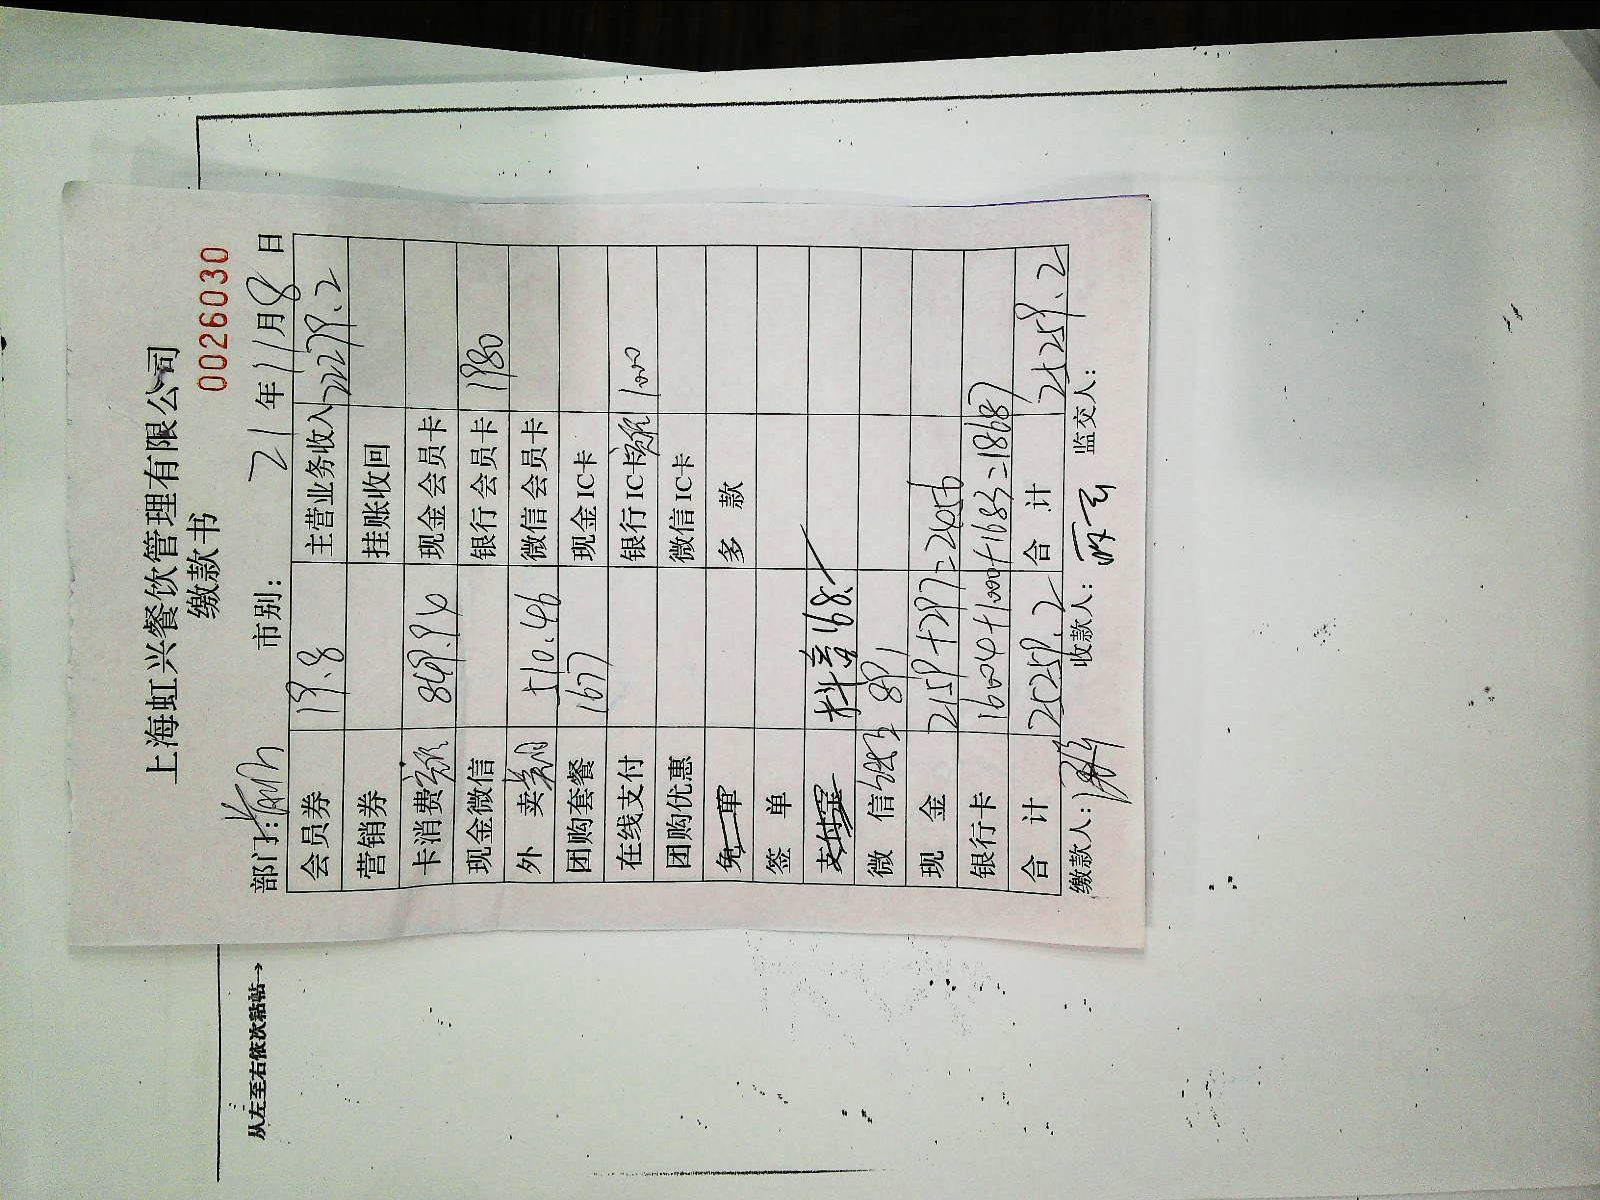 上海虹兴餐饮管理有限公司
缴款书
0026030
部门: 市别: 21年11月8日
会员券 19.8 主营业务收入 22279.2
营销券 挂账收回
卡消费 849.94 现金会员卡
现金微信 银行会员卡 1980
外卖 510.46 微信会员卡
团购套餐 1677 现金IC卡
在线支付 银行IC卡 1000
团购优惠 微信IC卡
免单 多款
签单
支付宝 抖音168.
微信 891
现金 2159+297=2456
银行卡 16004+1000+1683=18687
合计 25259.2 合计 25259.2
缴款人: 收款人: 监交人:
从左至右依次粘帖→